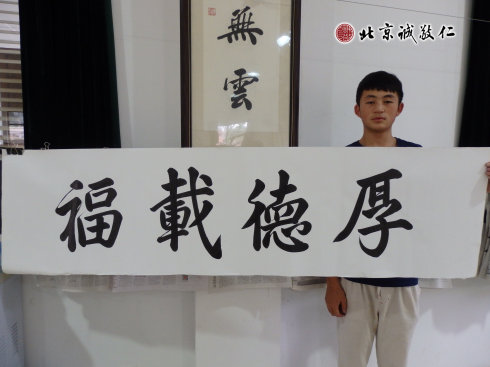 北京诚敬仁
無雲
厚德載福